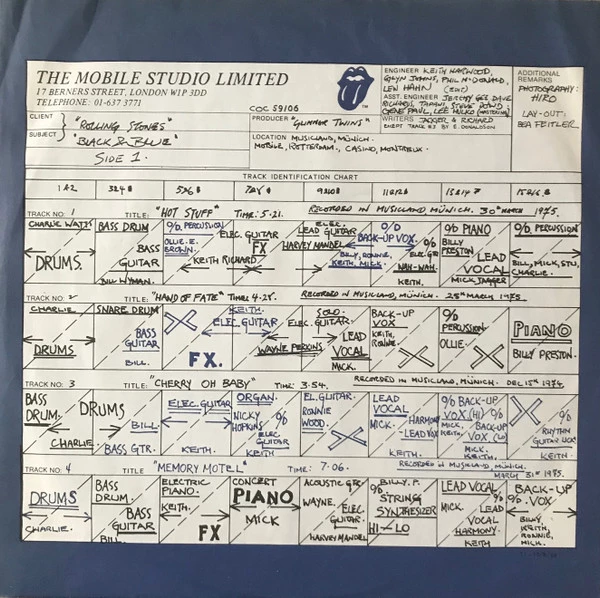 THE MOBILE STUDIO LIMITED
17 BERNERS STREET, LONDON W1P 3DD
TELEPHONE: 01-637 3771
COC 59106
ENGINEER KEITH HARWOOD,
GLYN JOHNS, PHIL McDONALD,
LEW HAHN (EDIT)
ASST. ENGINEER JEREMY GEE DAVE
RICHARDS, TAPANI, STEVE DOWD
GENE PAUL, LEE HULKO (MASTERING)
WRITERS JAGGER & RICHARD
EXEPT TRACK #3 BY E. DONALDSON
ADDITIONAL
REMARKS
PHOTOGRAPHY:
HIRO
LAY-OUT:
BEA FEITLER
CLIENT } "ROLLING STONES"
SUBJECT } "BLACK & BLUE"
SIDE 1.
PRODUCER "GLIMMER TWINS"
LOCATION MUSICLAND, MÜNICH.
MOBILE, ROTTERDAM, CASINO, MONTREUX.
TRACK IDENTIFICATION CHART
1 & 2
TRACK NO: 1 TITLE: "HOT STUFF" TIME: 5·21. RECORDED IN MUSICLAND, MÜNICH. 30TH MARCH 1975.
CHARLIE WATTS
DRUMS.
BASS DRUM
BASS
GUITAR
BILL WYMAN.
% PERCUSSION
OLLIE. E.
BROWN.
ELEC. GUITAR
FX
KEITH RICHARD
ELEC.
LEAD GUITAR
HARVEY MANDEL
O/D
BACK-UP VOX.
BILLY, RONNIE,
KEITH, MICK.
%
ELEC. GTR
WAH-WAH.
KEITH.
% PIANO
BILLY
PRESTON
LEAD
VOCAL
MICK JAGGER
% PERCUSSION
BILL, MICK, STU,
CHARLIE.
TRACK NO: 2 TITLE: "HAND OF FATE" TIME: 4·28. RECORDED IN MUSICLAND, MÜNICH. 25TH MARCH 1975
CHARLIE
DRUMS
SNARE DRUM
BASS
GUITAR
BILL.
KEITH.
ELEC GUITAR
FX.
ELEC. GUITAR.
WAYNE PERKINS.
SOLO
LEAD
VOCAL
MICK.
BACK-UP
VOX
KEITH,
RONNIE.
%
PERCUSSION
OLLIE.
PIANO
BILLY PRESTON.
TRACK NO. 3 TITLE: "CHERRY OH BABY" TIME: 3·54. RECORDED IN MUSICLAND, MÜNICH. DEC 15TH 1974.
BASS
DRUM.
DRUMS
CHARLIE
BILL.
BASS GTR.
ELEC. GUITAR
KEITH.
ORGAN.
NICKY
HOPKINS
%
ELEC
GUITAR
KEITH
EL. GUITAR
RONNIE
WOOD.
LEAD
VOCAL
MICK.
HARMONY
LEAD VOX
KEITH.
% BACK-UP
VOX (HI)
MICK.
KEITH.
%
BACK-UP
VOX (LO)
MICK.
KEITH.
%
RHYTHM
GUITAR VOX
KEITH
TRACK NO: 4 TITLE "MEMORY MOTEL" TIME: 7·06. RECORDED IN MUSICLAND, MÜNICH.
MARCH 31ST 1975.
DRUMS
CHARLIE.
BASS
DRUM.
BASS
GUITAR
BILL.
ELECTRIC
PIANO.
KEITH.
FX
CONCERT
PIANO
MICK
ACOUSTIC GTR
WAYNE.
ELEC
GUITAR.
HARVEY MANDEL
% BILLY. P.
STRING
SYNTHESIZER
HI-LO
LEAD VOCAL
MICK.
LEAD
VOCAL
HARMONY.
KEITH
%
BACK-UP
% VOX.
BILLY,
KEITH,
RONNIE,
MICK.